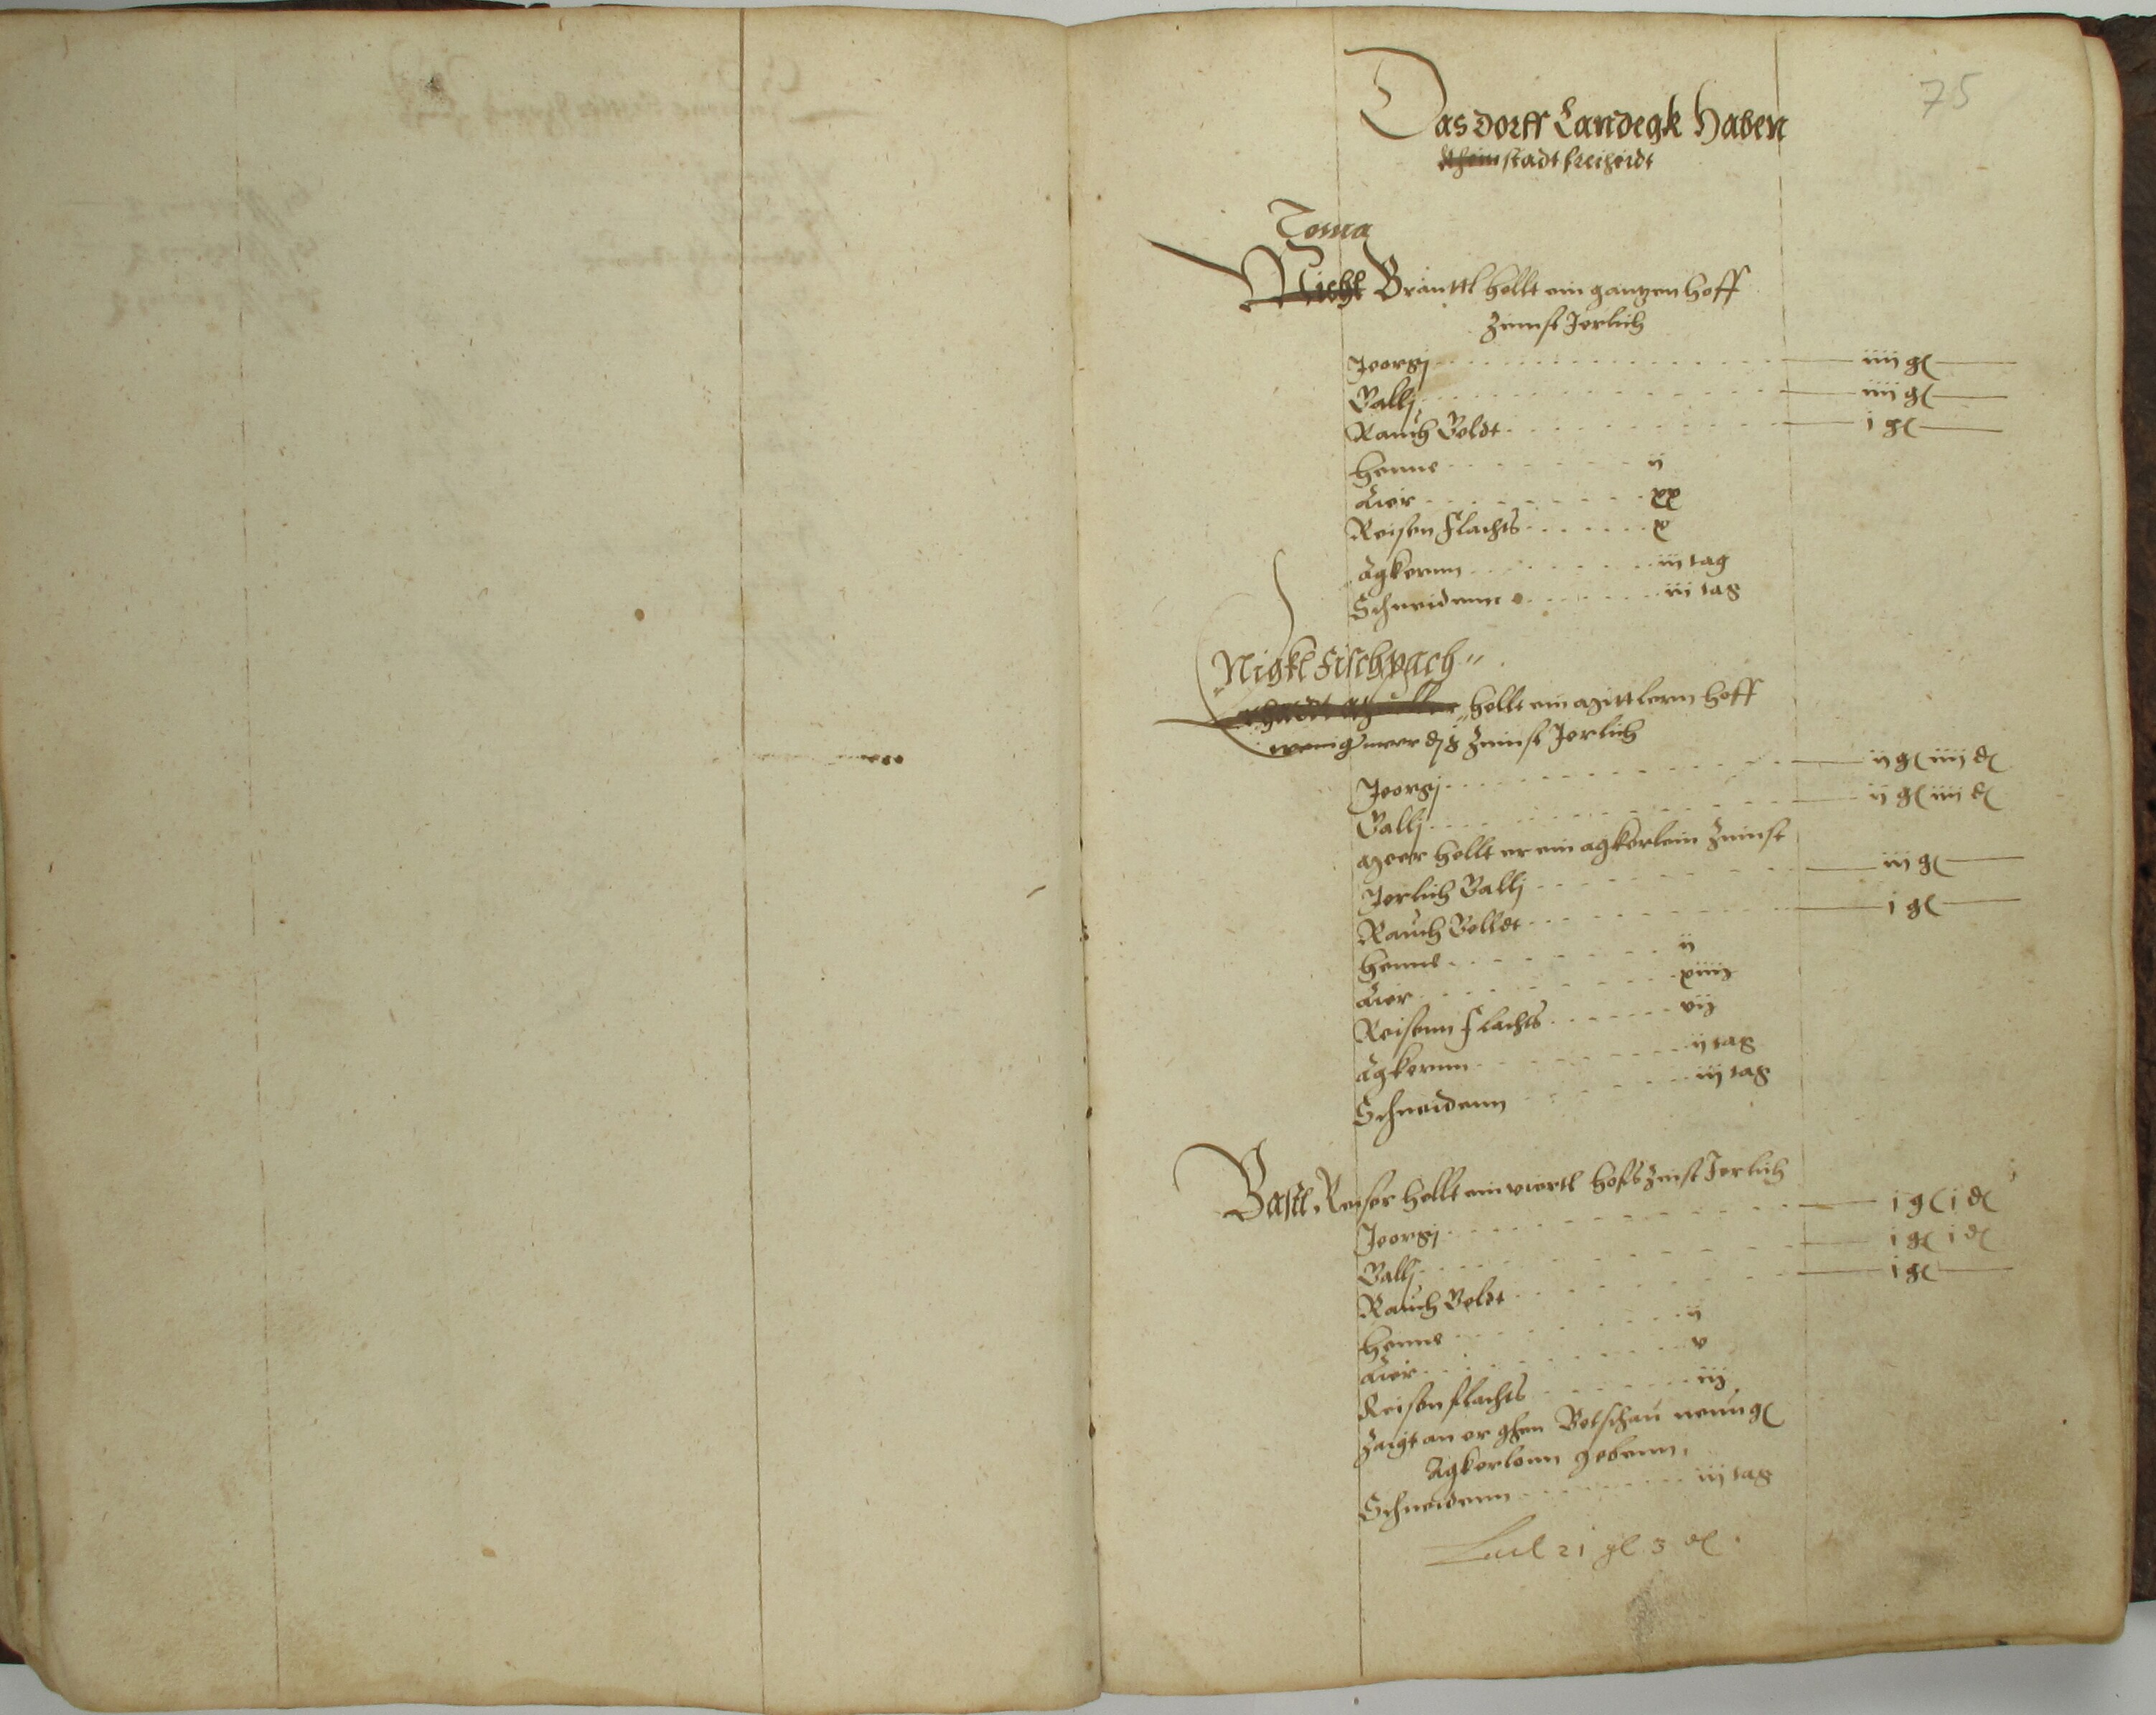 75
Das dorff Landegk haben
stadt freiheidt
Toma
Michl Brãnttl hellt ein gantzen hoff
Zinnst Jerlich
Jeorgj iiij gl
Gallj iiij gl
Rauch Geldt i gl
Henne ij
Aier xx
Reisen flachs x
Agkernn iij tag
Schneidenn iij tag
Nigkl Fischpach
hellt ein mittlern hoff
wenig meer Zinnst Jerlich
Jeorgj ij gl iiij dl
Gallj ij gl iiij dl
meer hellt er ein agkerlein Zinnst
Jerlich Gallj iij gl
Rauch Gelldt i gl
Henne ij
Aier xiiij
Reisenn flachs vij
Agkernn ij tag
Schneidenn iij tag
Bastl Reiser hellt ein viertl hofs Zinst Jerlich
Jeorgj i gl i dl
Gallj i gl i dl
Rauch Geldt i gl
Henne ij
Aier v
Reisen flachs iij
Zaigt an er ghen Betschau neun gl
Agkerlonn gebenn.
Schneidenn iij tag
Lael 21 gl 3 dl.